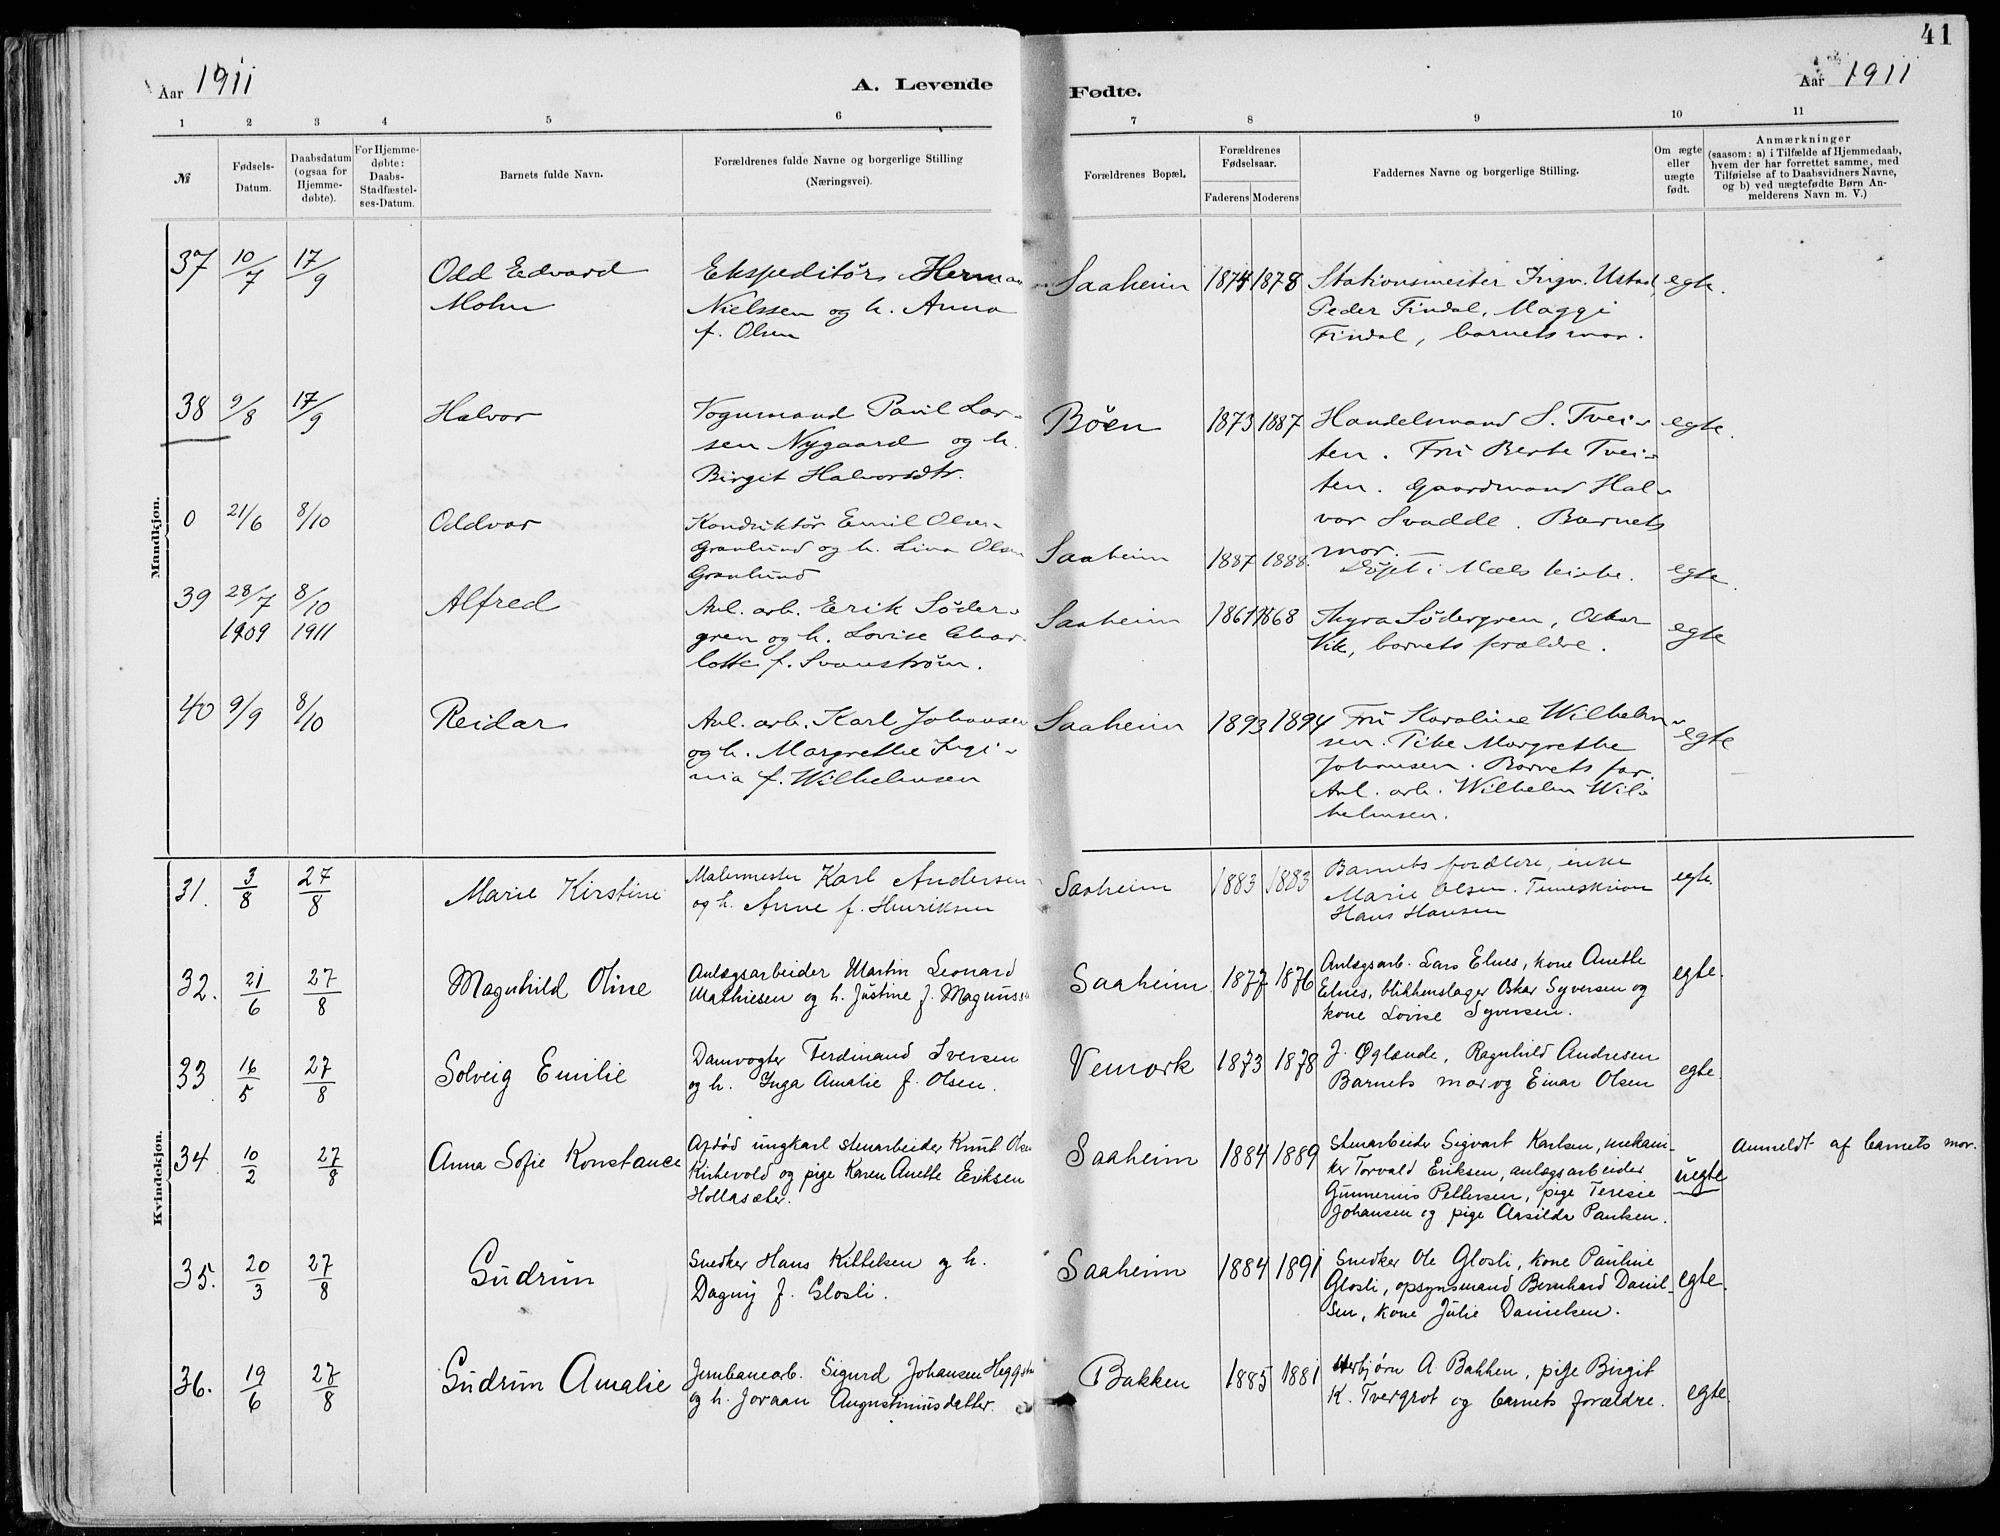 41
Aar 1911 A. Levende Fødte. Aar 1911
1 2 3 4 5 6 7 8 9 10 11
№
Fødsels-
Datum.
Daabsdatum
(ogsaa for
Hjemme-
døbte).
For Hjemme-
døbte:
Daabs-
Stadfæstel-
ses-Datum.
Barnets fulde Navn.
Forældrenes fulde Navne og borgerlige Stilling
(Næringsvei).
Forældrenes Bopæl.
Forældrenes
Fødselsaar.
Faderens Moderens
Faddernes Navne og borgerlige Stilling.
Om ægte
eller
uægte
født.
Anmærkninger
(saasom: a) i Tilfælde af Hjemmedaab,
hvem der har forrettet samme, med
Tilføielse af to Daabsvidners Navne,
og b) ved uægtefødte Børn An-
melderens Navn m. V.)
Mandkjøn.
37 10/7 17/9
Odd Edvard
Mohn
Ekspeditør Herman
Nielssen og h. Anna
f. Olsen
Saaheim 1874 1878
Stationsmester Ingv. Ustad,
Peder Findal, Maggi
Findal, barnets mor.
egte.
38 9/8 17/9
Halvor
Vognmand Paul Lar-
sen Nygaard og h.
Birgit Halvorsdtr.
Bøen 1873 1887
Handelsmand S. Tvei-
ten. Fru Berte Tvei-
ten. Gaardmand Hal-
vor Svadde. Barnets
mor.
egte.
0 21/6 8/10
Oddvar
Konduktør Emil Olsen
Granlund og h. Lina Olsen
Granlund
Saaheim 1887 1888.
Døpt i Mæls kirke.
egte.
39 28/7 1909 8/10 1911
Alfred
Anl. arb. Erik Söder-
gren og h. Lovise Char-
lotte f. Svanstrøm.
Saaheim 1861 1868
Thyra Södergren, Oskar
Vik, barnets forældre.
egte
40 9/9 8/10
Reidar
Anl. arb. Karl Johansen
og h. Margrethe Ingi-
nia f. Wilhelmsen
Saaheim 1893 1894
Fru Karoline Wilhelm-
sen. Pike Margrethe
Johansen. Barnets far.
Anl. arb. Wilhelm Wil-
helmsen.
egte
Kvindekjøn.
31. 3/8 27/8
Marie Kirstine
Malermester Karl Andersen
og h. Anne f. Henriksen
Saaheim 1883 1883
Barnets forældre, enke
Marie Olsen. Timeskriver
Hans Hansen
egte.
32. 21/6 27/8
Magnhild Oline
Anlægsarbeider Martin Leonard
Mathiesen og h. Justine f. Magnuss
Saaheim 1877 1876
Anlægsarb. Lars Elnes, kone Anette
Elnes, blikkenslager Oskar Syversen og
kone Lovise Syversen.
egte.
33 16/5 27/8
Solveig Emilie
Damvogter Ferdinand Iversen
og h. Inga Amalie f. Olsen.
Vemork 1873 1878
J. Øglænde, Ragnhild Andresen
Barnets mor og Einar Olsen
egte.
34 10/2 27/8
Anna Sofie Konstance
Afdød ungkarl stenarbeider Knut Olsen
Kirkevold og pige Karen Anette Eriksen
Hollasæter.
Saaheim 1884 1889
Stenarbeider Sigvart Karlsen, mekani-
ker Torvald Eriksen, anlægsarbeider
Gunnerius Pettersen, pige Teresie
Johansen og pige Aasilda Paulsen.
uegte
Anmeldt af barnets mor.
35. 20/3 27/8
Gudrun
Snedker Hans Kittelsen og h.
Dagny f. Glosli.
Saaheim 1884 1891
Snedker Ole Glosli, kone Pauline
Glosli, opsynsmand Bernhard Daniel-
sen, kone Julie Danielsen.
egte.
36. 19/6 27/8
Gudrun Amalie
Jernbanearb. Sigurd Johansen Heggst
og h. Joraan Augustinusdatter.
Bakken 1885 1881
Herbjørn A. Bakken, pige Birgit
K. Tvergrot og barnets forældre.
egte.